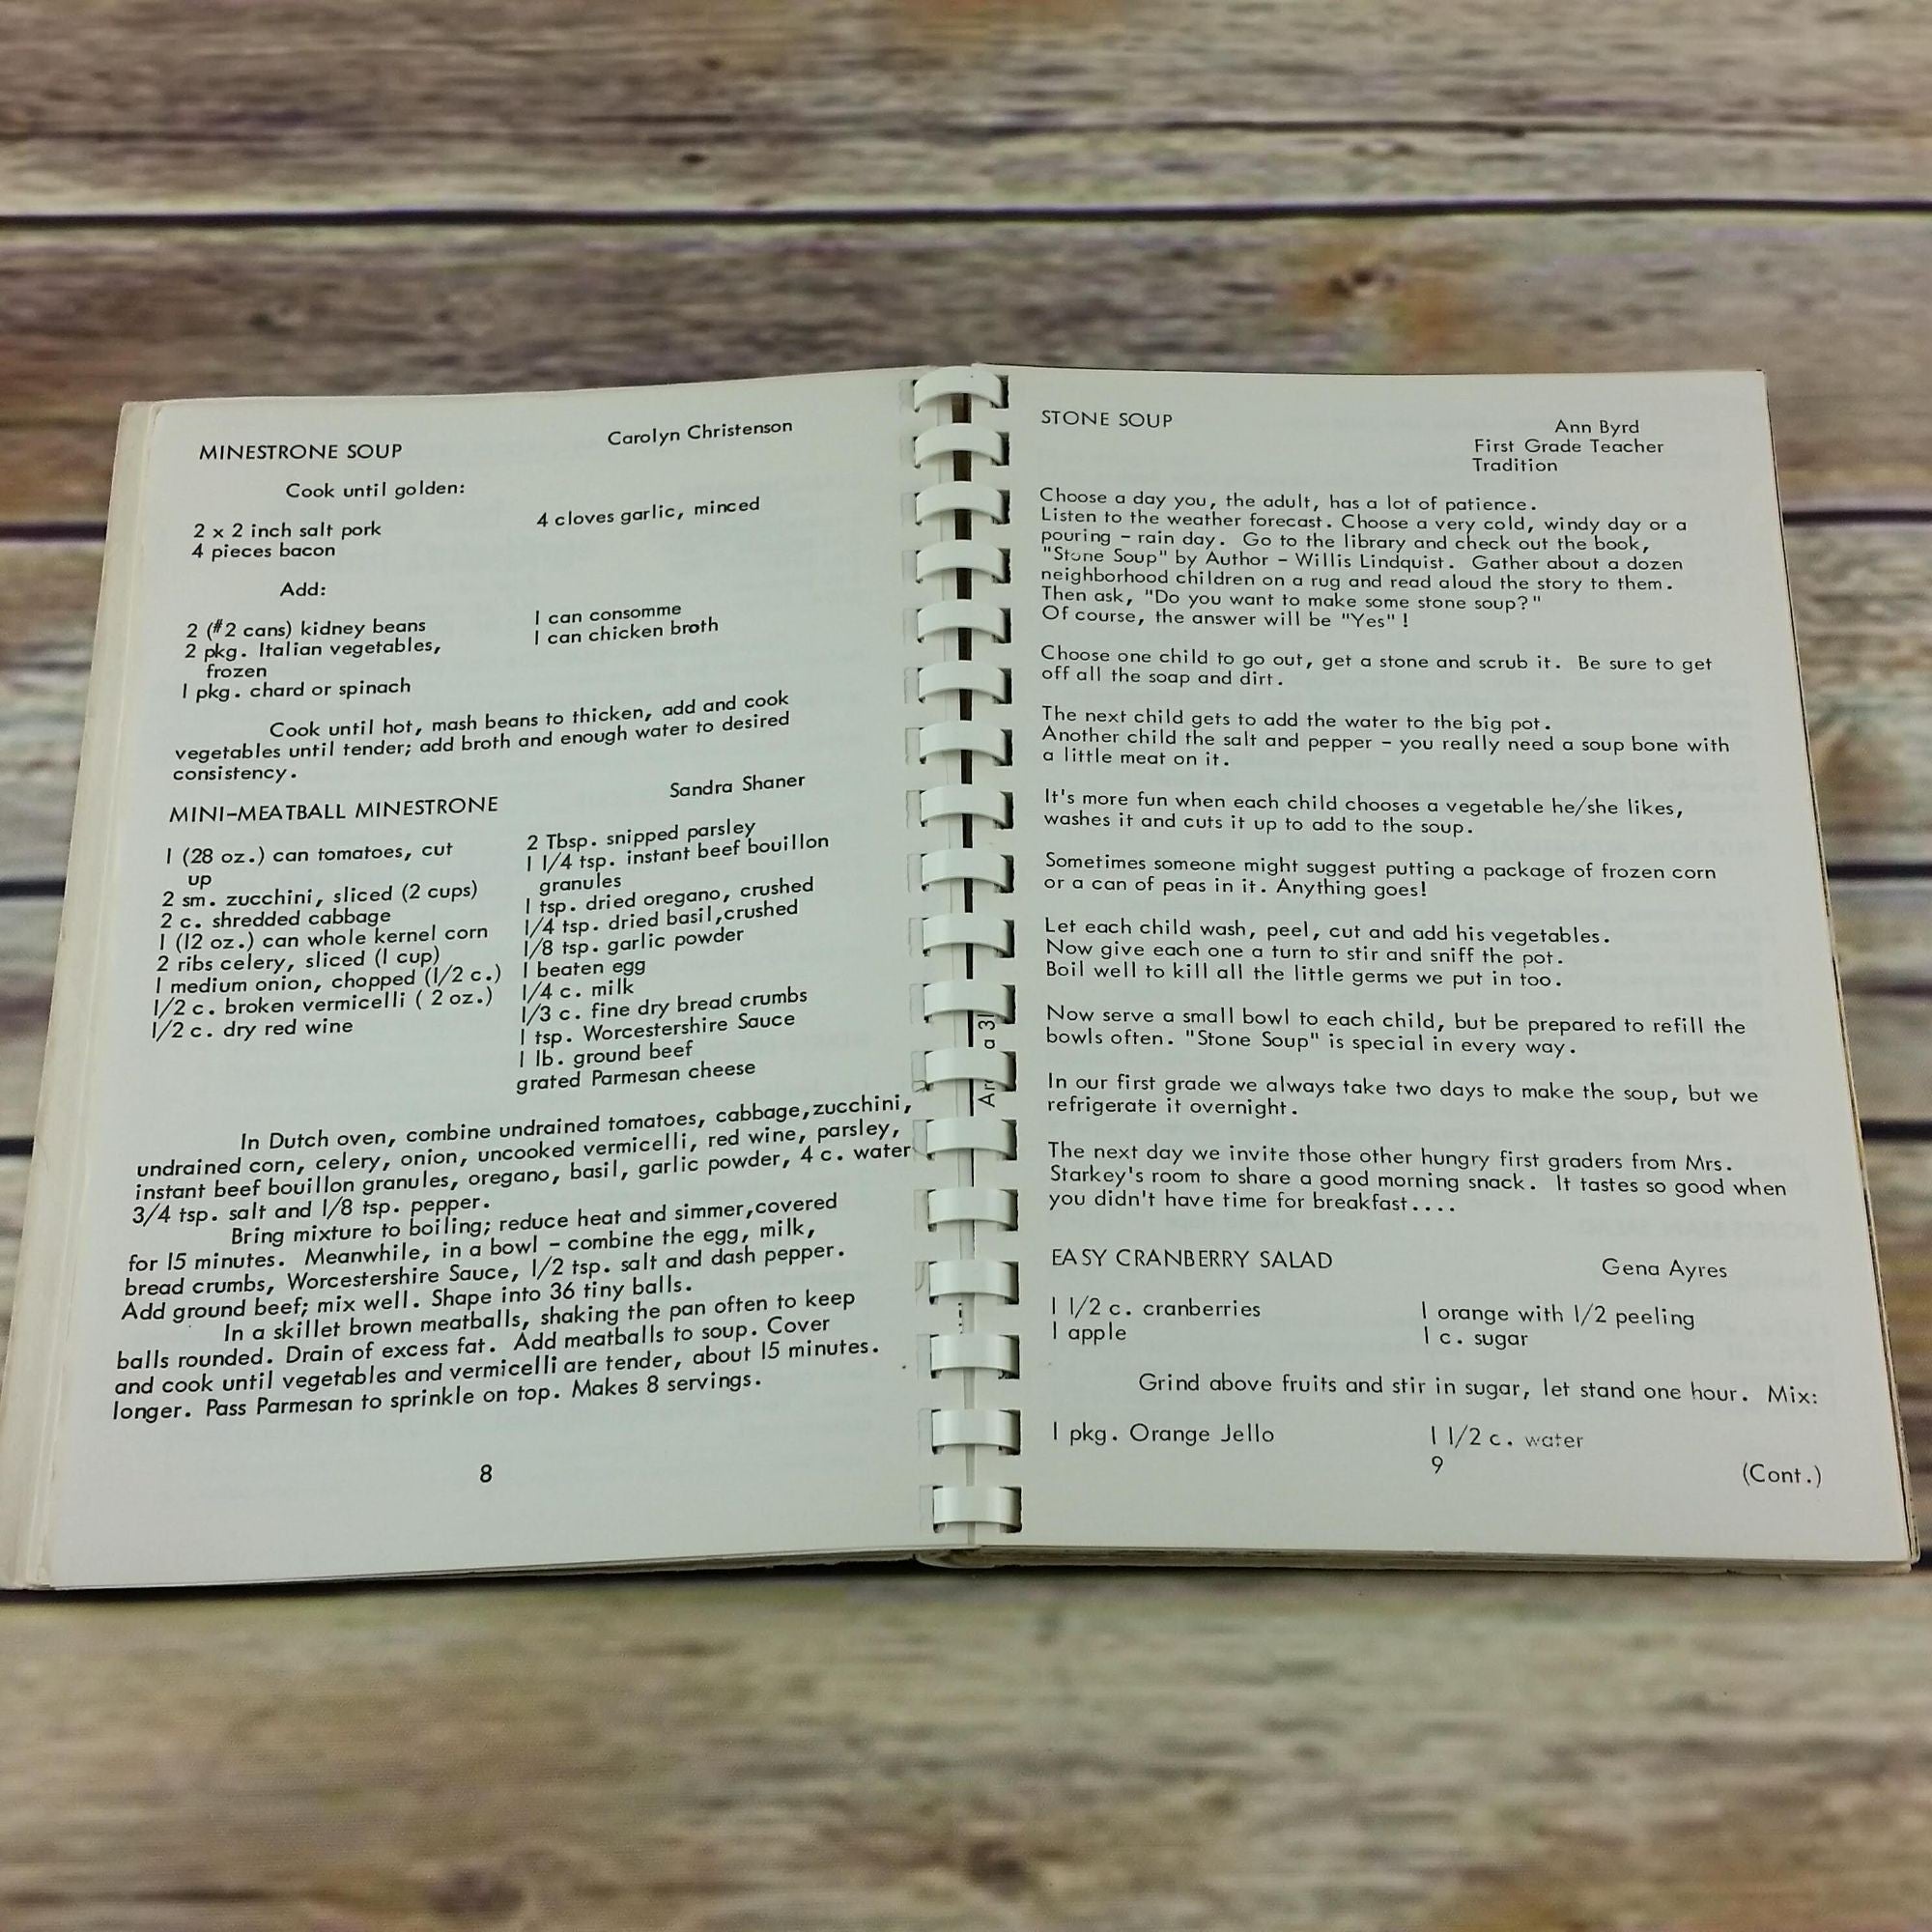 MINESTRONE SOUP
Carolyn Christenson
Cook until golden:
2 x 2 inch salt pork
4 pieces bacon
4 cloves garlic, minced
Add:
2 (#2 cans) kidney beans
2 pkg. Italian vegetables,
frozen
1 pkg. chard or spinach
1 can consomme
1 can chicken broth
Cook until hot, mash beans to thicken, add and cook
vegetables until tender; add broth and enough water to desired
consistency.
Sandra Shaner
MINI-MEATBALL MINESTRONE
1 (28 oz.) can tomatoes, cut
up
2 sm. zucchini, sliced (2 cups)
2 c. shredded cabbage
1 (12 oz.) can whole kernel corn
2 ribs celery, sliced (1 cup)
1 medium onion, chopped (1/2 c.)
1/2 c. broken vermicelli ( 2 oz.)
1/2 c. dry red wine
2 Tbsp. snipped parsley
1 1/4 tsp. instant beef bouillon
granules
1 tsp. dried oregano, crushed
1/4 tsp. dried basil,crushed
1/8 tsp. garlic powder
1 beaten egg
1/4 c. milk
1/3 c. fine dry bread crumbs
1 tsp. Worcestershire Sauce
1 lb. ground beef
grated Parmesan cheese
In Dutch oven, combine undrained tomatoes, cabbage,zucchini,
undrained corn, celery, onion, uncooked vermicelli, red wine, parsley,
instant beef bouillon granules, oregano, basil, garlic powder, 4 c. water
3/4 tsp. salt and 1/8 tsp. pepper.
Bring mixture to boiling; reduce heat and simmer,covered
for 15 minutes. Meanwhile, in a bowl - combine the egg, milk,
bread crumbs, Worcestershire Sauce, 1/2 tsp. salt and dash pepper.
Add ground beef; mix well. Shape into 36 tiny balls.
In a skillet brown meatballs, shaking the pan often to keep
balls rounded. Drain of excess fat. Add meatballs to soup. Cover
and cook until vegetables and vermicelli are tender, about 15 minutes.
longer. Pass Parmesan to sprinkle on top. Makes 8 servings.
8
STONE SOUP
Ann Byrd
First Grade Teacher
Tradition
Choose a day you, the adult, has a lot of patience.
Listen to the weather forecast. Choose a very cold, windy day or a
pouring - rain day. Go to the library and check out the book,
"Stone Soup" by Author - Willis Lindquist. Gather about a dozen
neighborhood children on a rug and read aloud the story to them.
Then ask, "Do you want to make some stone soup?"
Of course, the answer will be "Yes"!
Choose one child to go out, get a stone and scrub it. Be sure to get
off all the soap and dirt.
The next child gets to add the water to the big pot.
Another child the salt and pepper - you really need a soup bone with
a little meat on it.
It's more fun when each child chooses a vegetable he/she likes,
washes it and cuts it up to add to the soup.
Sometimes someone might suggest putting a package of frozen corn
or a can of peas in it. Anything goes!
Let each child wash, peel, cut and add his vegetables.
Now give each one a turn to stir and sniff the pot.
Boil well to kill all the little germs we put in too.
Now serve a small bowl to each child, but be prepared to refill the
bowls often. "Stone Soup" is special in every way.
In our first grade we always take two days to make the soup, but we
refrigerate it overnight.
The next day we invite those other hungry first graders from Mrs.
Starkey's room to share a good morning snack. It tastes so good when
you didn't have time for breakfast....
EASY CRANBERRY SALAD
Gena Ayres
1 1/2 c. cranberries
1 apple
1 orange with 1/2 peeling
1 c. sugar
Grind above fruits and stir in sugar, let stand one hour. Mix:
1 pkg. Orange Jello
1 1/2 c. water
9
(Cont.)